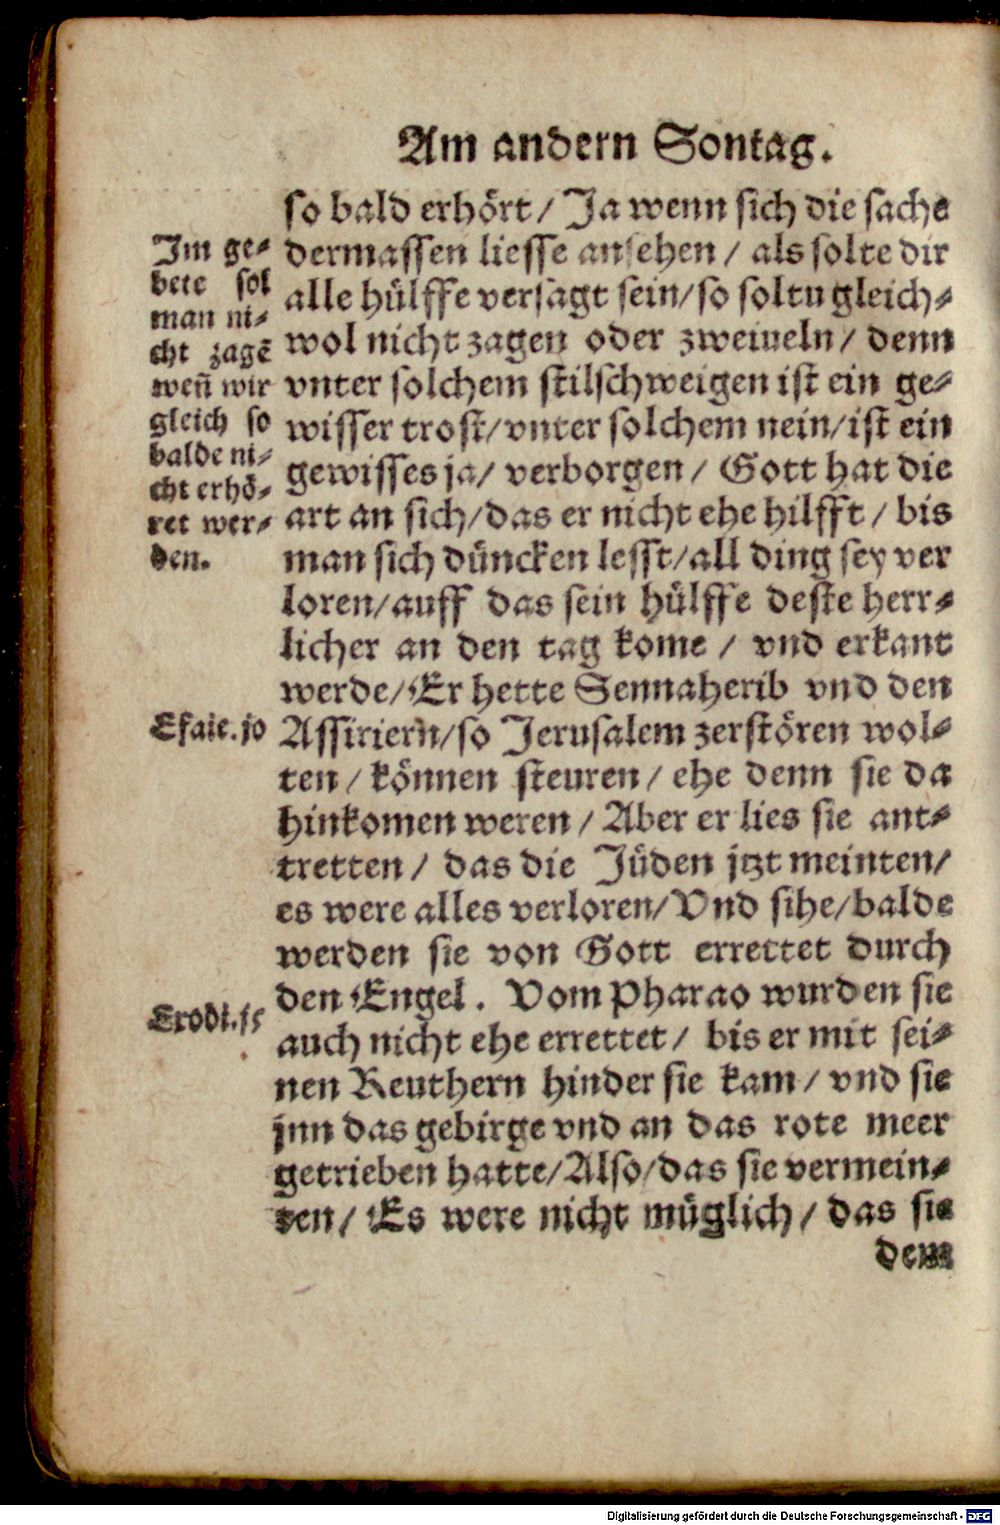 Am andern Sontag.
so bald erhört / Ja wenn sich die sache
dermassen liesse ansehen / als solte dir
alle hülffe versagt sein/so soltu gleich-
wol nicht zagen oder zweiueln / denn
vnter solchem stilschweigen ist ein ge-
wisser trost/vnter solchem nein/ist ein
gewisses ja/ verborgen / Gott hat die
art an sich/das er nicht ehe hilfft / bis
man sich düncken lesst/all ding sey ver
loren/auff das sein hülffe deste herr-
licher an den tag kome / vnd erkant
werde/Er hette Sennaherib vnd den
Assiriern/so Jerusalem zerstören wol-
ten / können steuren / ehe denn sie da
hinkomen weren / Aber er lies sie ant-
tretten / das die Jüden jtzt meinten/
es were alles verloren/Vnd sihe/balde
werden sie von Gott errettet durch
den Engel. Vom Pharao wurden sie
auch nicht ehe errettet / bis er mit sei-
nen Reuthern hinder sie kam / vnd sie
jnn das gebirge vnd an das rote meer
getrieben hatte/Also/das sie vermein-
ten/ Es were nicht müglich / das sie
dem
Im ge-
bete sol
man ni-
cht zagē
wen̄ wir
gleich so
balde ni-
cht erhö-
ret wer-
den.
Esaie. 30
Exodi. 15
Digitalisierung gefördert durch die Deutsche Forschungsgemeinschaft - DFG